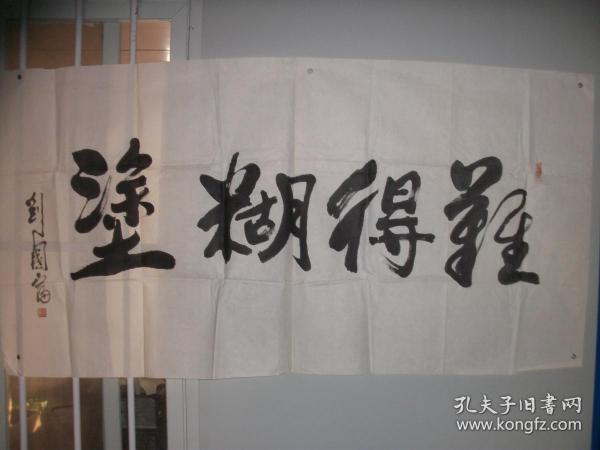 難得糊塗
劉國富
孔夫子旧書网
www.kongfz.com